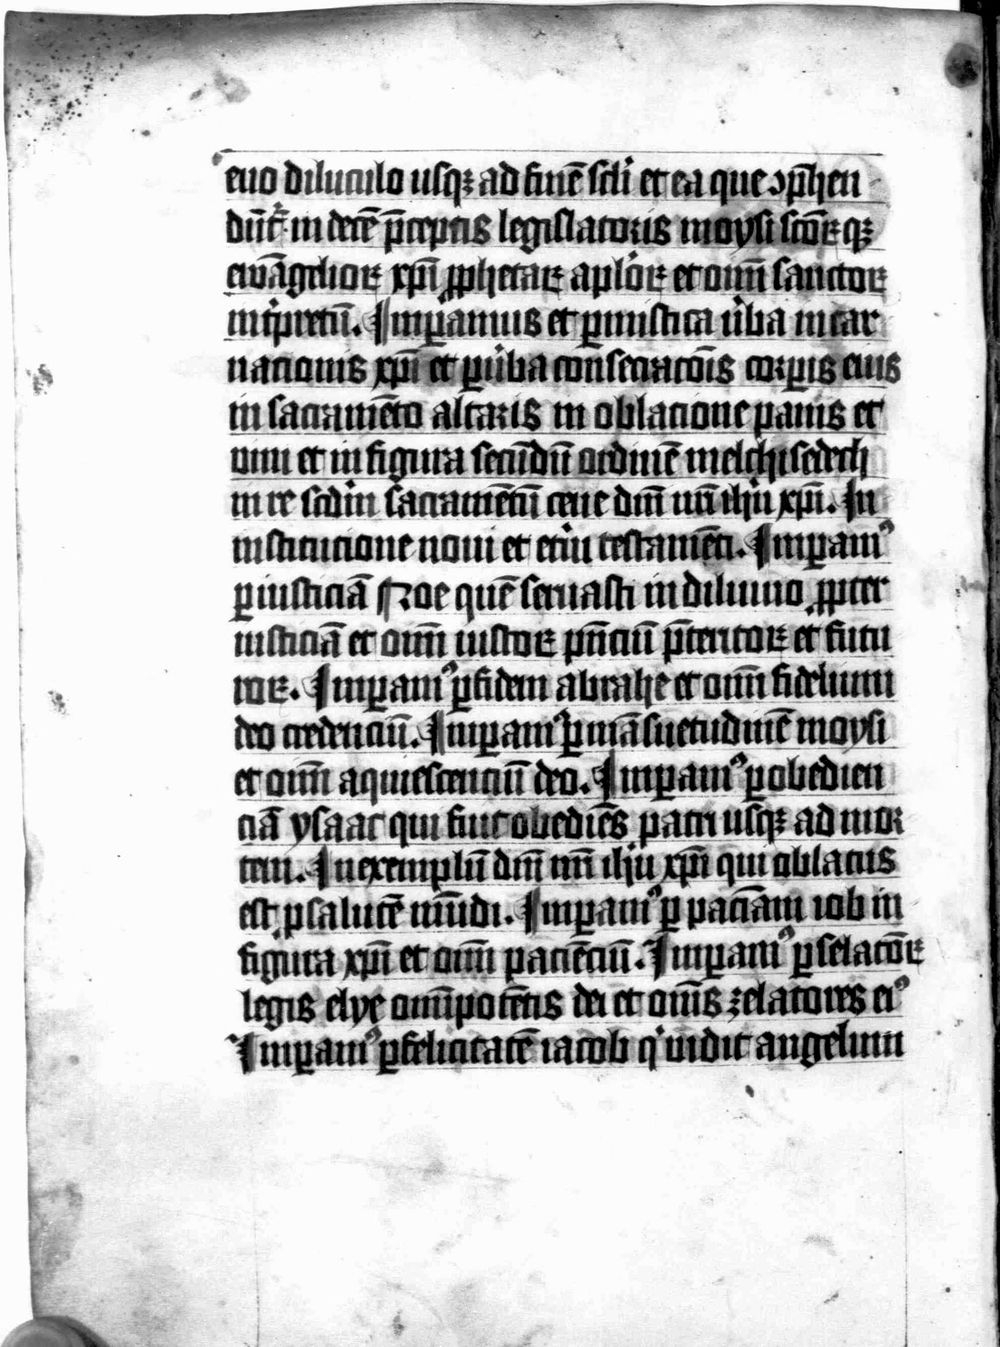 euo diluculo usqꝫ ad finē scłi et ea que ↄp̄hen
dūt᷑ in decē p̄ceptis legislatoris moysi sctōꝝqꝫ
ewāgelioꝝ xp̄i ꝓphetaꝝ apl'oꝝ et oīm sanctoꝝ
int'pretū. Imꝑamus et ꝑ mistica ūba incar
nationis xp̄i et ꝑ ūba consecracōīs corꝑis eius
in sacramēto altaris in oblacione panis et
vini et in figura secūdū ordinē melchisedech
in re scdm sacramētū cene dn̄i nr̄i ihū xp̄i. In
institucione noui et et'ni testamēti. Imꝑamꝰ
ꝑ iusticiā Noe quē seruasti in diluuio ꝓpter
iusticiā et oīm iustoꝝ pn̄ciū p̄teritoꝝ et futu
roꝝ. Imꝑamꝰ ꝑ fidem abrahe et oīm fidelium
deo credenciū. Imꝑamꝰ ꝑ māsuetudinē moysi
et oīm aquiescenciū deo. Imꝑamꝰ ꝑ obedien
ciā ysaac qui fuit obediēs patri usqꝫ ad mor
tem. In exemplū dn̄i nr̄i ihū xp̄i qui oblatus
est ꝓ salutē mūdi. Imꝑamꝰ ꝑ paciāam iob in
figura xp̄i et oīm paciēciū. Imꝑamꝰ ꝑ selacōꝝ
legis elye omīpotētis dei et oīs zelatores eiꝰ
Imꝑamꝰ ꝑ felicitatē iacob q' uidit angelum